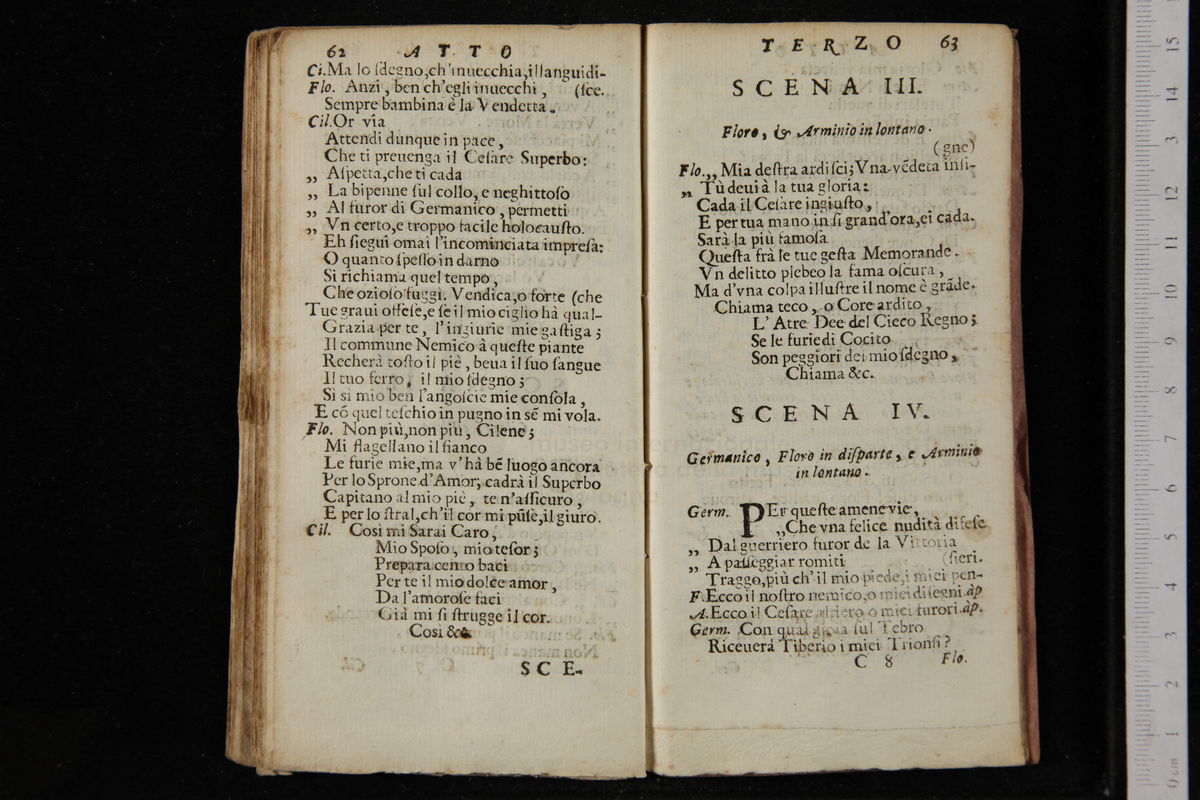 62 ATTO
Ci. Ma lo ſdegno, ch'inuecchia, illanguidi-
Flo. Anzi, ben ch'egli inuecchi, (ſce.
Sempre bambina è la Vendetta.
Cil. Or via
Attendi dunque in pace,
Che ti preuenga il Ceſare Superbo:
„ Aſpetta, che ti cada
„ La bipenne ſul collo, e neghittoſo
„ Al furor di Germanico, permetti
„ Vn certo, e troppo facile holocauſto.
Eh ſiegui omai l'incominciata impreſa:
O quanto ſpeſſo in darno
Si richiama quel tempo,
Che ozioſo fuggì. Vendica, o forte (che
Tue graui offeſe, e ſe il mio ciglio hà qual-
Grazia per te, l'ingiurie mie gaſtiga;
Il commune Nemico à queſte piante
Recherà toſto il piè, beua il ſuo ſangue
Il tuo ferro, il mio ſdegno;
Sì sì mio ben l'angoſcie mie conſola,
E cō quel teſchio in pugno in sē mi vola.
Flo. Non più, non più, Cilene;
Mi flagellano il fianco
Le furie mie, ma v'hà bē luogo ancora
Per lo Sprone d'Amor; cadrà il Superbo
Capitano al mio piè, te n'aſſicuro,
E per lo ſtral, ch'il cor mi pūſe, il giuro.
Cil. Così mi Sarai Caro,
Mio Spoſo, mio teſor;
Prepara cento baci
Per te il mio dolce amor,
Da l'amoroſe faci
Già mi ſi ſtrugge il cor.
Così &c.
SCE-
TERZO 63
SCENA III.
Floro, & Arminio in lontano.
(gne)
Flo. „ Mia deſtra ardiſci; Vna vēdeta inſi-
„ Tù deui à la tua gloria:
Cada il Ceſare ingiuſto,
E per tua mano in ſi grand'ora, ei cada.
Sarà la più famoſa
Queſta frà le tue geſta Memorande.
Vn delitto plebeo la fama oſcura,
Ma d'vna colpa illuſtre il nome è grāde.
Chiama teco, o Core ardito,
L'Atre Dee del Cieco Regno;
Se le furie di Cocito
Son peggiori del mio ſdegno,
Chiama &c.
SCENA IV.
Germanico, Floro in diſparte, e Arminio
in lontano.
Germ. PEr queſte amene vie,
„ Che vna felice nudità difeſe
„ Dal guerriero furor de la Vittoria
„ A paſſeggiar romiti (ſieri.
Traggo, più ch'il mio piede, i miei pen-
F. Ecco il noſtro nemico, o miei diſegni àp
A. Ecco il Ceſare altiero o miei furori. àp.
Germ. Con qual gioia ſul Tebro
Riceuerà Tiberio i miei Trionfi?
C 8 Flo.